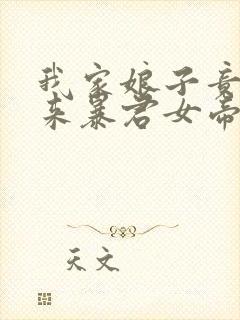 我家娘子竟
来暴君女帝
天文